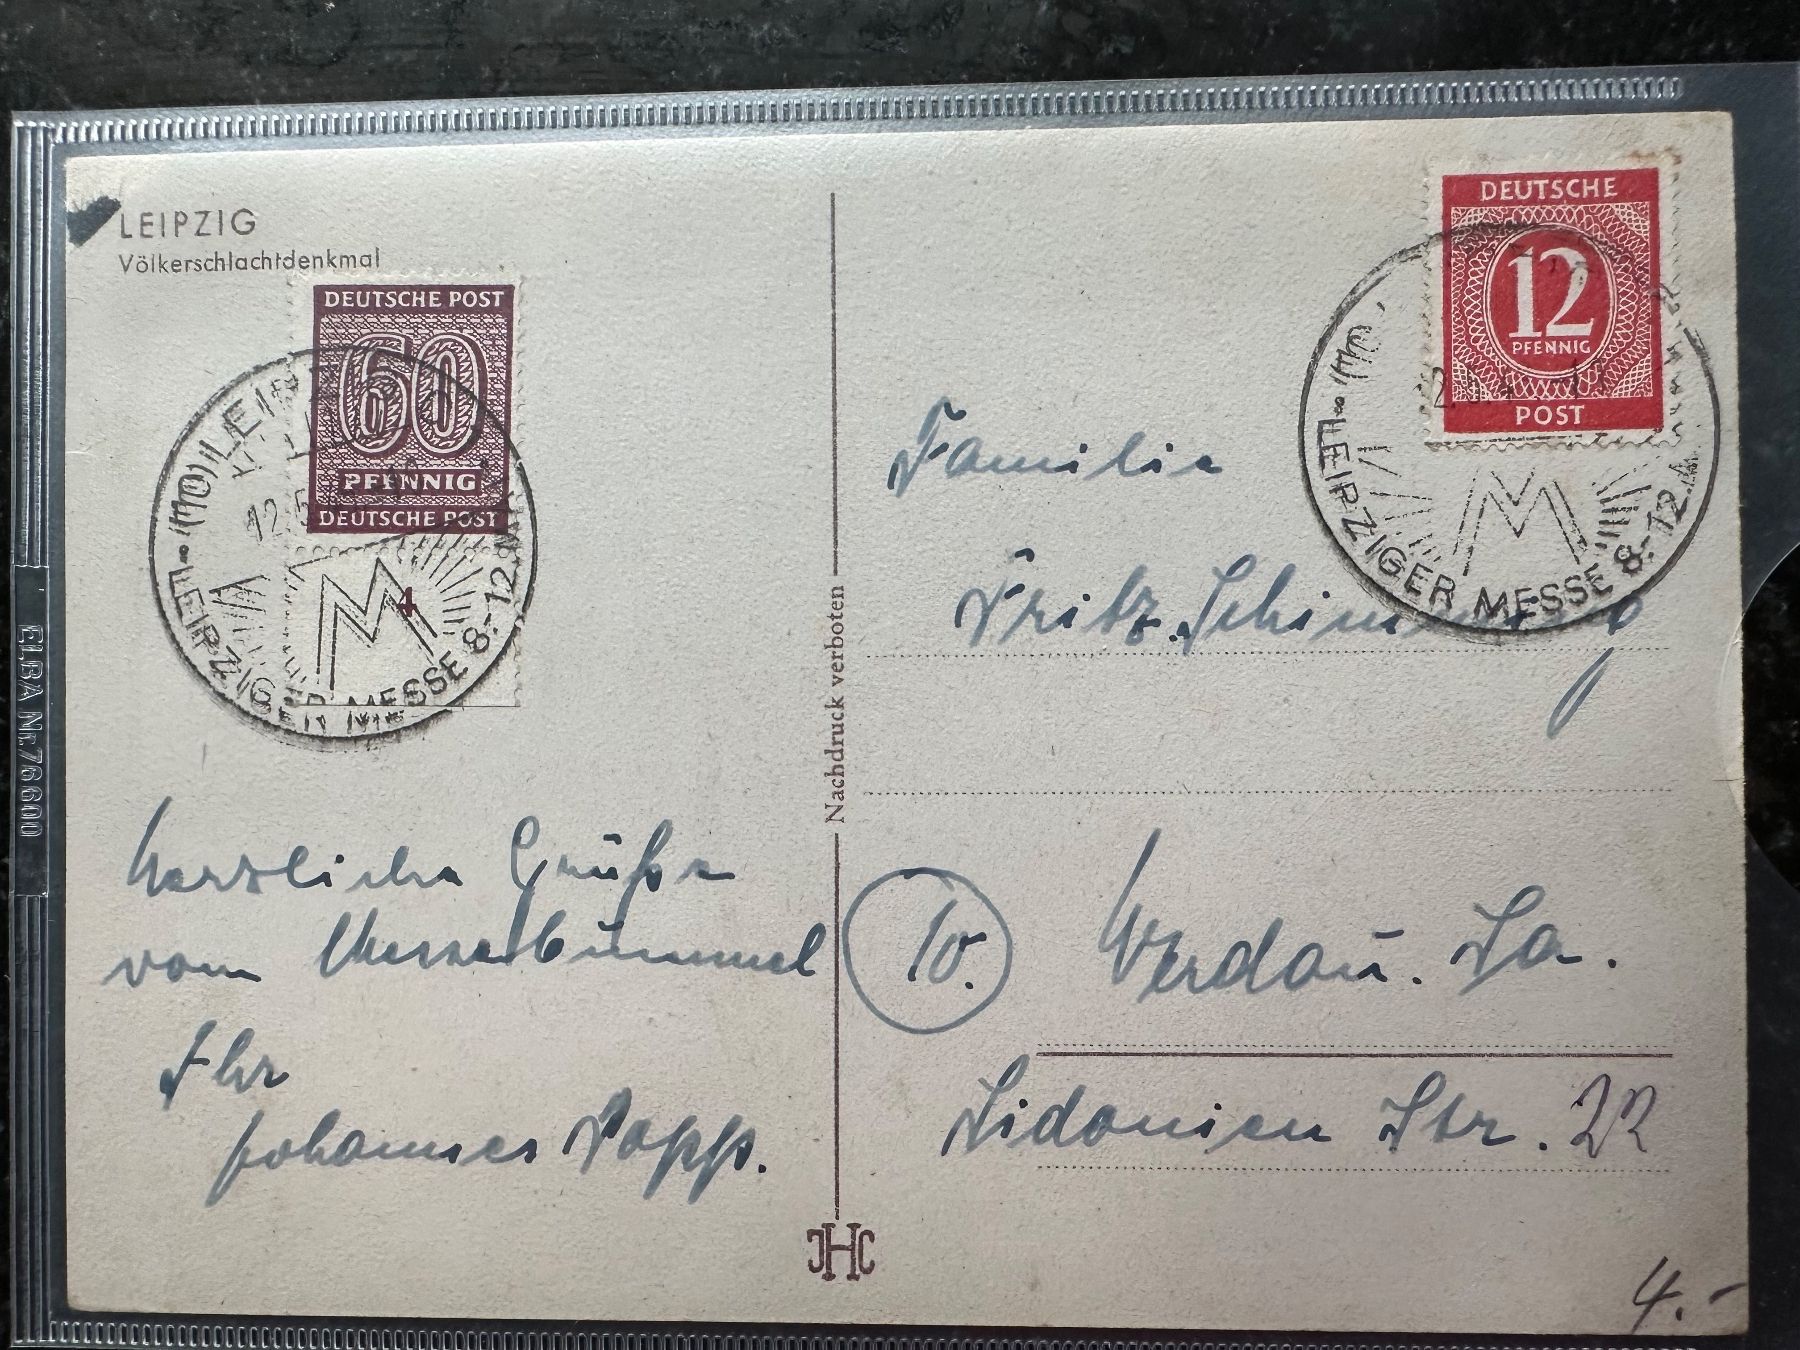 LEIPZIG
Völkerschlachtdenkmal
DEUTSCHE POST
60
PFENNIG
DEUTSCHE POST
4
(10) LEIPZIG
12.5.
LEIPZIGER MESSE 8.-12.
M
Herzliche Grüße
vom Messebummel
Ihr
Johannes Popp.
Nachdruck verboten
JHC
DEUTSCHE
12
PFENNIG
POST
LEIPZIGER MESSE 8.-12.
M
Familie
Fritz
10.
Werdau. Sa.
Sidonien Str. 22
4.-
ELBA Nr. 76600